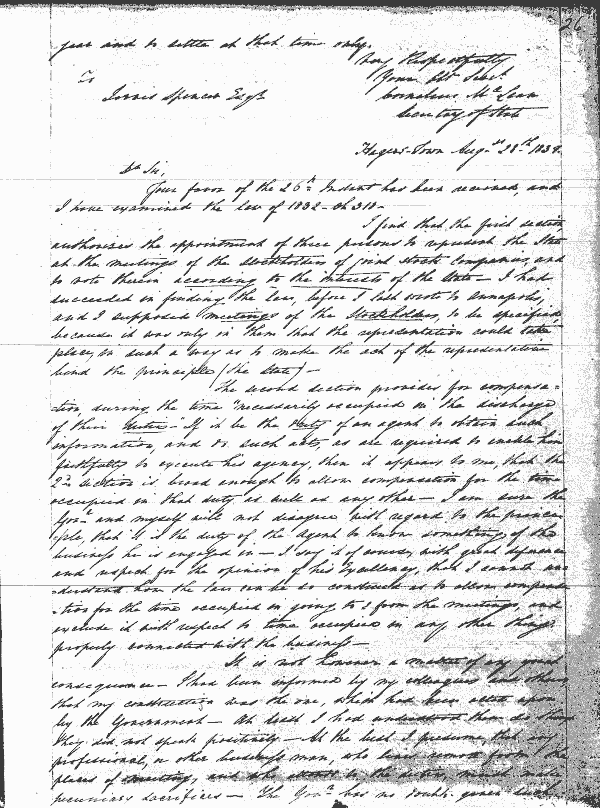 26
year and to settle at that time only.
Very Respectfully
Your Obt Servt
To
Jarvis Spencer Esqr
Cornelius McLean
Secretary of State
Hagers-Town Augst 28th 1839.
Dr Sir,
Your favor of the 26th Instant has been received, and
I have examined the law of 1832 - Ch 318 -
I find that the first section,
authorises the appointment of three persons to represent the State
at the meetings of the Stockholders of joint Stock Companies, and
to vote therein according to the interests of the State - I had
succeeded in finding the law, before I last wrote to Annapolis,
and I supposed meetings of the Stockholders, to be specified
because it was only in them that the representation could take
place, in such a way as to make the act of the representative
bind the principle (the State) -
The second section provides for compensa-
tion, during the time "necessarily occupied in the discharge
of their duties" - If it be the duty of an agent to obtain such
information, and do such acts, as are required to enable him
faithfully to execute his agency, then it appears to me, that the
2nd section is broad enough to allow compensation for the time
occupied in that duty as well as any other - I am sure the
Govr and myself will not disagree with regard to the princi-
ple, that it is the duty of the Agent to know something of the
business he is engaged in - I say it of course, with great deference
and respect for the opinion of his Excellency, that I cannot un-
derstand how the law can be so construed as to allow compensa-
tion for the time occupied in going to & from the meetings, and
exclude it with respect to time occupied in any other things
properly connected with the business -
It is not however a matter of any great
consequence - I had been informed by my colleagues and others
that my construction was the one, which had been acted upon
by the Government - At least I had understood them so though
they did not speak positively - At the best, I presume, that any
professional, or other business man, who lives remote from the
places of meeting, and who attends to the duties, must make
pecuniary sacrifices - The Govr has no doubt, given such